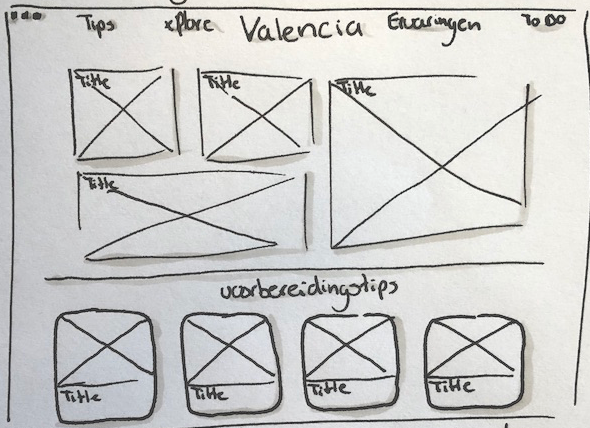 Tips xPlore Valencia Ervaringen To Do
Title Title Title
Title
voorbereidingstips
Title Title Title Title